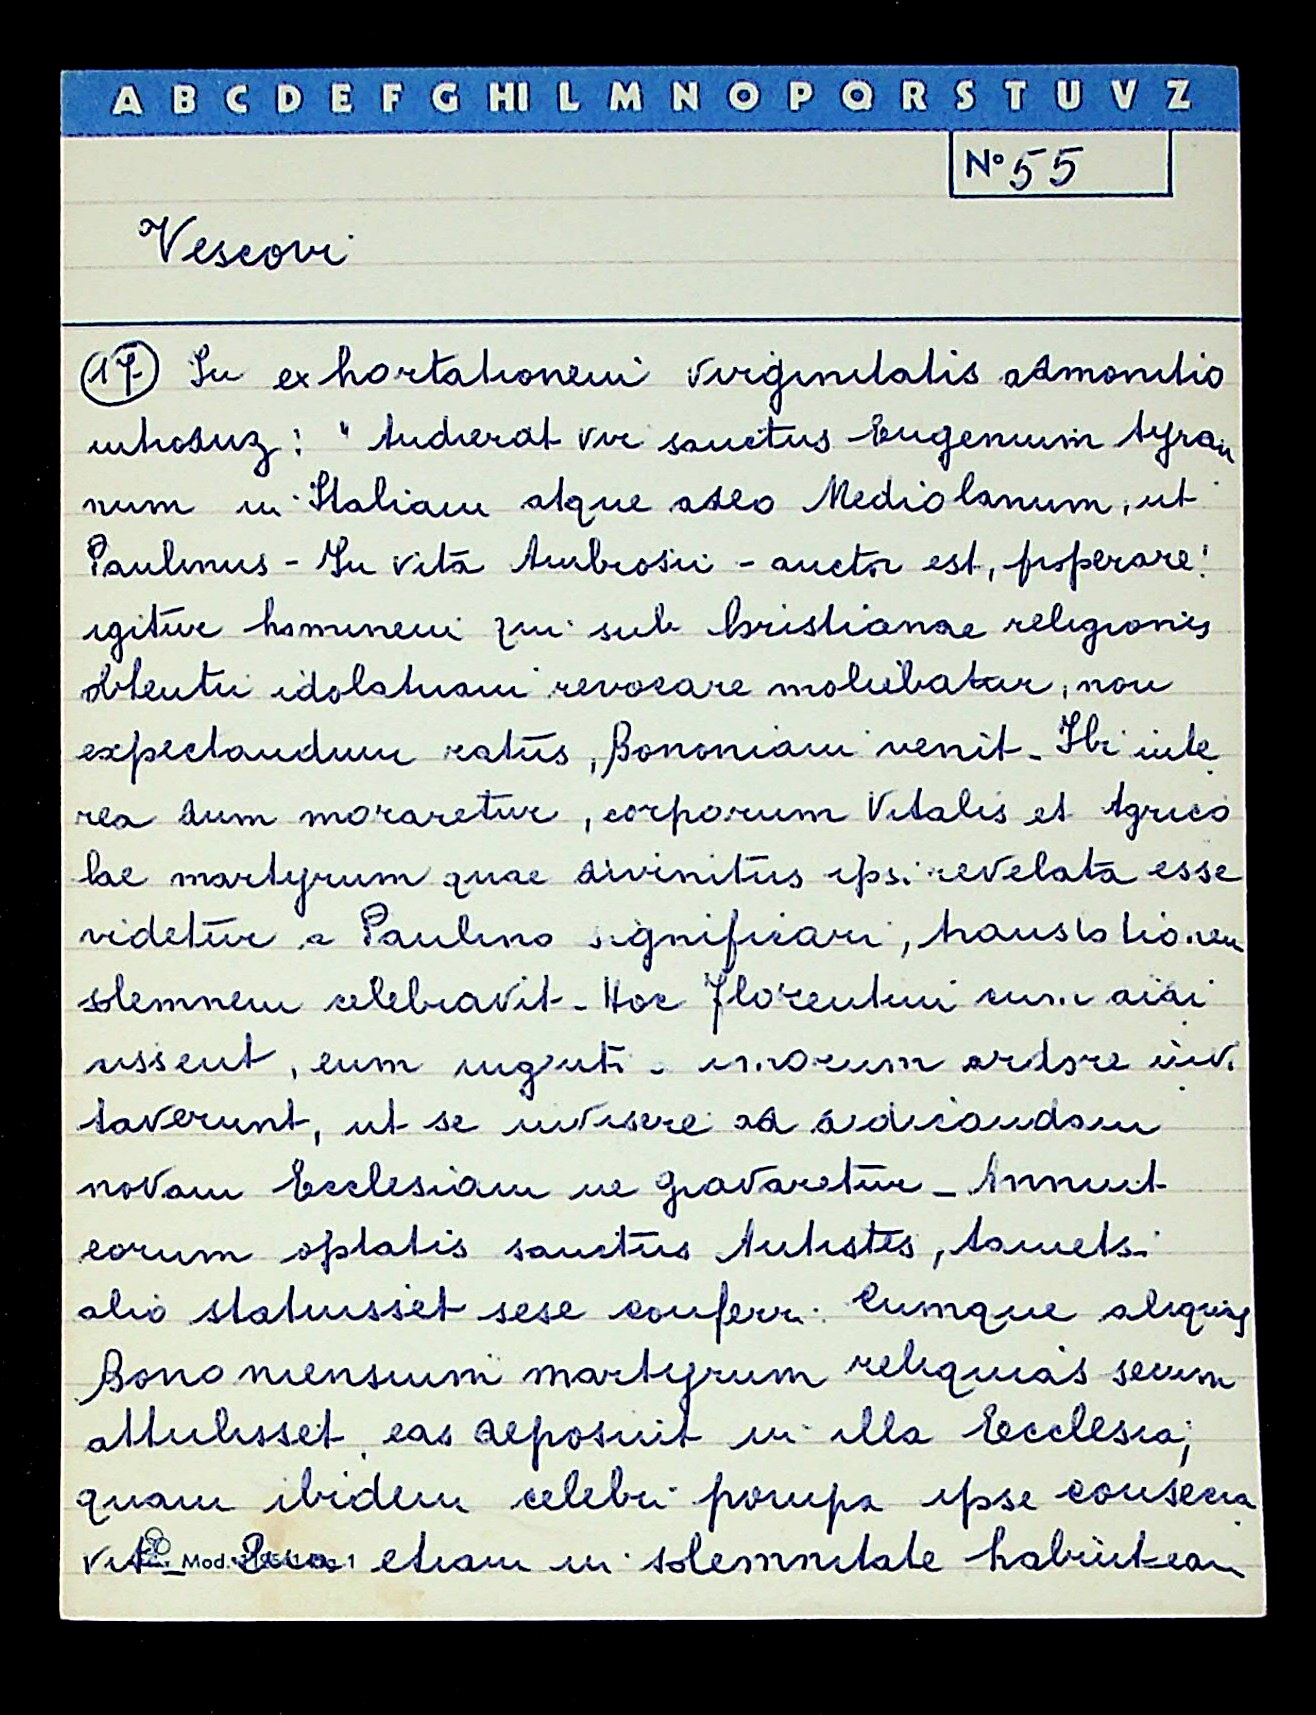 A B C D E F G HI L M N O P Q R S T U V Z
N° 55
Vescovi
17 In exhortationem virginitatis admonitio
introduz: " Audierat vir sanctus Eugenium tyran
num in Italiam atque adeo Mediolanum, ut
Paulinus - In vita Ambrosii - auctor est, properare:
igitur hominem qui sub Christianae religionis
obtentu idolatriam revocare moliebatur, non
expectandum ratus, Bononiam venit. Ibi inte
rea dum moraretur, corporum Vitalis et Agrico
lae martyrum quae divinitus ipsi revelata esse
videtur a Paulino significari, translationem
solemnem celebravit. Hoc Florentini cum audi
issent, eum ingenti animorum ardore invi
taverunt, ut se invisere ad dedicandam
novam Ecclesiam ne gravaretur. Annuit
eorum optatis sanctus Antistes, tametsi
alio statuisset sese conferri. Cumque aliquas
Bononiensium martyrum reliquias secum
attulisset eas deposuit in illa Ecclesia;
quam ibidem celebri pompa ipse consecra
vit. etiam in solemnitate habuit eam
Mod. 1